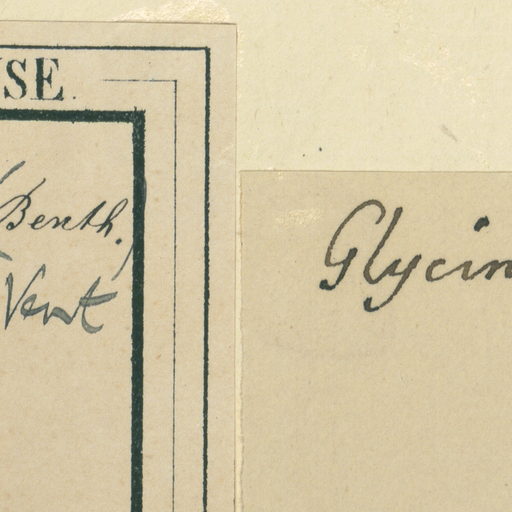 SE.
(Benth.)
Vent
Glycin